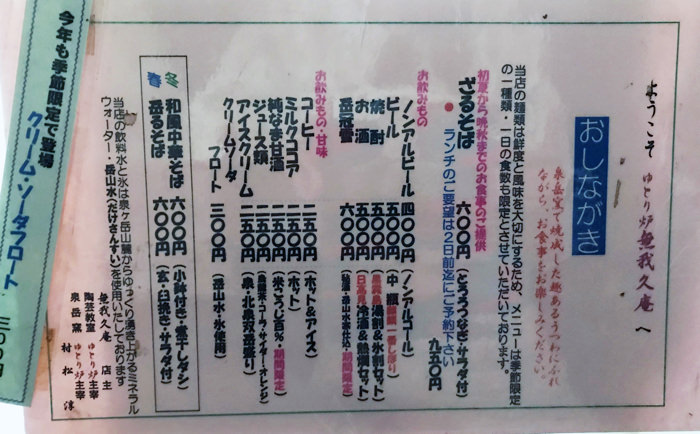 ようこそ ゆとり炉 無我久庵 へ
おしながき
泉岳窯で焼成した趣あるうつわにふれ
ながら、お食事をお楽しみください。
当店の麺類は鮮度と風味を大切にするため、メニューは季節限定
の一種類・一日の食数も限定とさせていただいております。
初夏から晩秋までのお食事のご提供
ざるそば 六〇〇円 (とろろつなぎ・サラダ付) 九五〇円
●ランチのご要望は2日前迄にご予約下さい
お飲みもの
ノンアルビール 四〇〇円 (ノンアルコール)
ビール 五〇〇円 (中瓶 一番しぼり)
焼酎 五〇〇円 (湯割&水割セット)
お酒 五〇〇円 (冷酒&熱燗セット)
岳氷雪 六〇〇円 期間限定)
お飲みもの・甘味
コーヒー 二五〇円 (ホット&アイス)
ミルクココア 二五〇円 (ホット)
純なま甘酒 二五〇円 (米こうじ百% 期間限定)
ジュース類 二五〇円 コーラ・サイダー・オレンジ)
アイスクリーム 二五〇円 (泉・北泉双岳盛り)
クリームソーダ
フロート 三〇〇円 (岳山水・氷使用)
冬 和風中華そば 六〇〇円 (小鉢付き・煮干しダシ)
春 岳るそば 六〇〇円 (玄・臼挽き・サラダ付)
当店の飲料水と氷は泉ヶ岳山麓からゆっくり湧き上がるミネラル
ウォーター・岳山水(だけさんすい)を使用いたしております
無我久庵 店主
陶芸教室 ゆとり炉 主宰
泉岳窯 ゆとり炉 主宰
村松 淳
今年も季節限定で登場
クリーム・ソーダフロート 三〇〇円